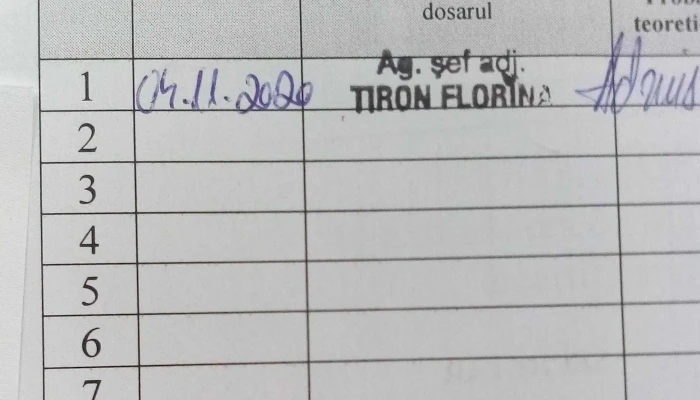 dosarul
teoreti
1 04.11.2020 Ag. șef adj.
TIRON FLORINA Admis
2
3
4
5
6
7